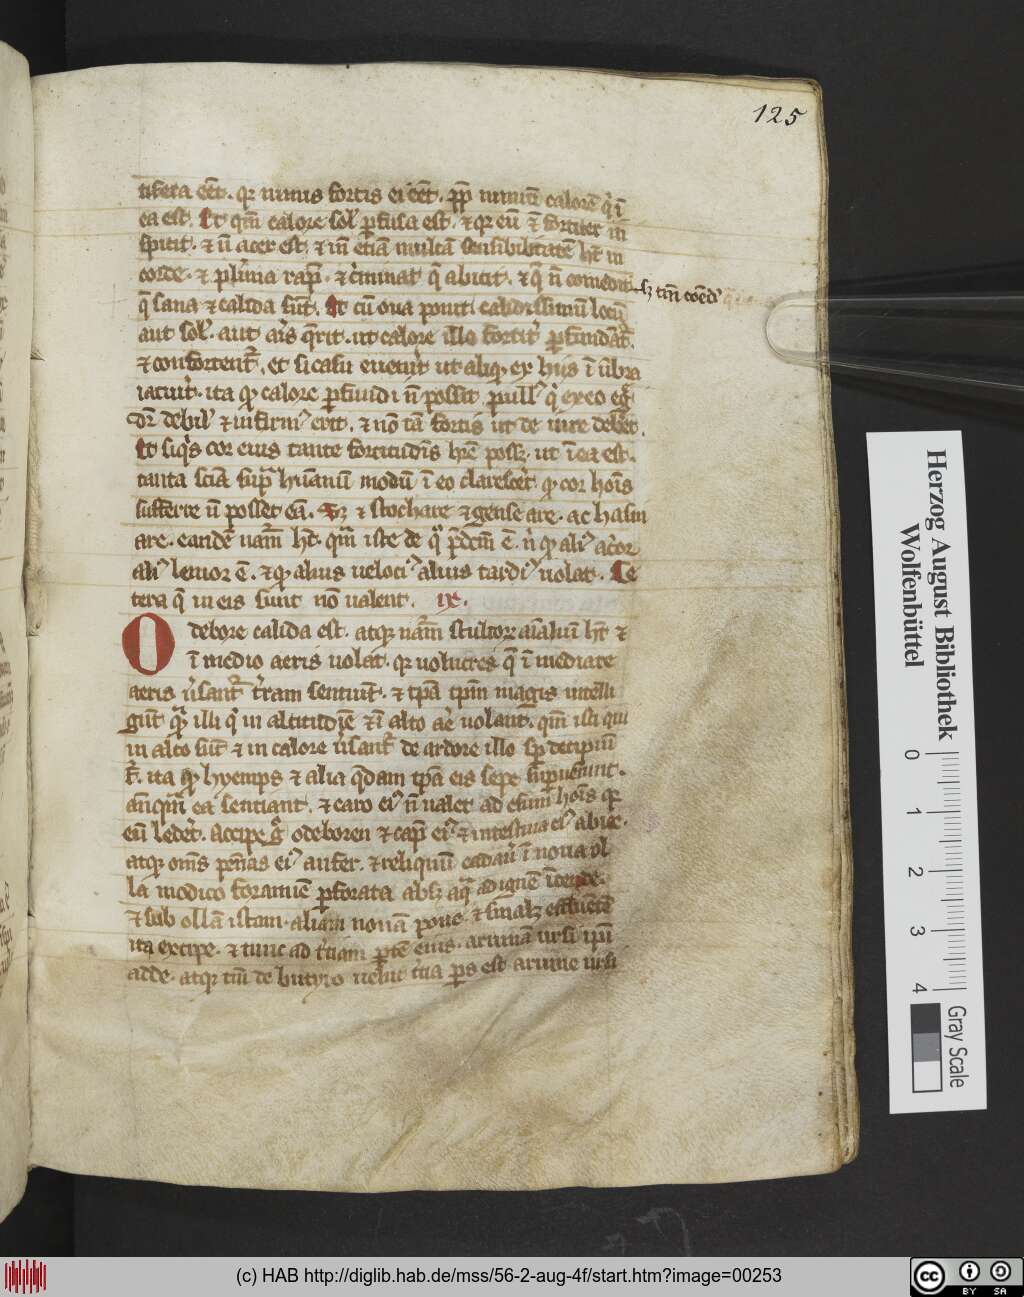 125
nifera eēt. qr nimis fortis ei eēt. ꝓp̄ nimiū calorē q' ī
ea est. Et qm̄ calore sol' ꝑfusa est. ⁊ qr eū ī fortiter in
spirit. ⁊ ñ acer est. ⁊ iñ etiā multā sensibilitatē hꝫ in
corde. ⁊ plurīa rap̄. ⁊ c'minat q̄ abicit. ⁊ q̄ ñ comedit
sꝫ tm̄ coēd'
q̄ sana ⁊ calida sūt. Et cū oua ponit calidissimū locū
aut sol'. aut aīs q̄rit. ut calore illo fortit' ꝑfundāt'.
⁊ confortent'. et si casu euen'it ut aliqɜ ex hiis ī ūbra
iacuit. ita qɜ calore ꝑfundi ñ possit pull' q' ex eo eg'
dr̄ debil' ⁊ infirm' erit. ⁊ nō tā fortis ut de iure debet.
Et siq's cor eius tante fortitudīs hr̄e possꝫ. ut ī ea est.
tanta sciā sup̄ humanū modū ī eo claresc'et qɜ cor hoīs
sufferre ñ posset eā. Sꝫ ⁊ stochare ⁊ gense are. ac hasin
are. eandē nām hn̄t. qm̄ iste de q° p̄dcm̄ ē. n' qɜ ali' ac'or
ali' leuior ē. ⁊ qɜ alius ueloci' alius tardi' uolat. Ce
tera q̄ in eis sunt nō ualent. ix.
Odebore calida est. atqɜ nām stultorɜ aīaliū hꝫ ⁊
ī medio aeris uolat. qr uolucres q̄ ī mediate
aeris ūsant' t'ram sentiūt. ⁊ tp̄a tpm̄ magis intelli
gūt qɜ illi q' in altitudīe ⁊ ī alto aere uolant. qm̄ isti qui
in alto sūt ⁊ in calore ūsant' de ardore illo sp̄ decipiū
t'. ita qɜ hyemps ⁊ alia q̄dam tp̄a eis sepe sup̄ueniunt.
anqm̄ ea sentiant. ⁊ caro ei' ñ ualet ad esum hoīs qr
eū leder'. Accipe g° odeboren ⁊ cap̄ ei' ⁊ intestina ei' abice.
atqɜ om̄s pennas ei' aufer. ⁊ reliquū cadau' ī noua ol
la modico foramīe ꝑforata absqɜ aq̄ ad ignē īcende.
⁊ sub ollā istam. aliam nouā pone. ⁊
ita excipe. ⁊ tunc ad t'ciam ꝑtē eius. aruinā ursi ip̄i
adde. atqɜ tm̄ de butyro uelut t'cia ꝑs est aruine ursi
Herzog August Bibliothek
Wolfenbüttel
0
1
2
3
4
Gray Scale
(c) HAB http://diglib.hab.de/mss/56-2-aug-4f/start.htm?image=00253
cc
BY SA